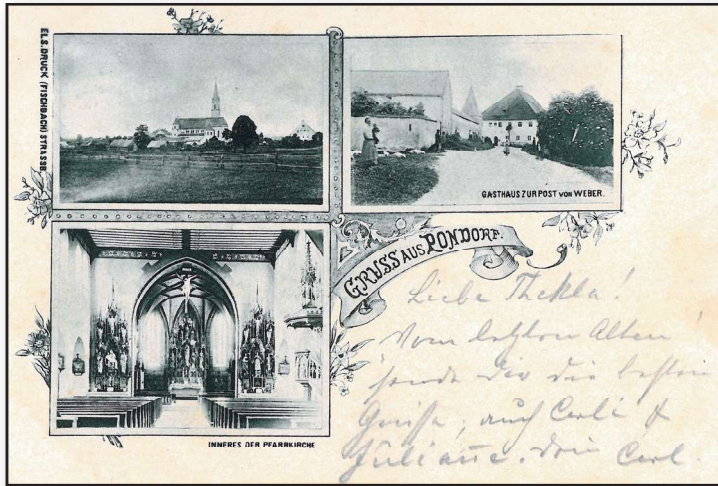 ELS. DRUCK (FISCHBACH) STRASSB.
GASTHAUS ZUR POST VON WEBER.
GRUSS AUS PONDORF.
INNERES DER PFARRKIRCHE
Liebe Thekla!
Vom letzten Alten
sendet dir die besten
Grüße, auch Carli &
Juliane. dein Carl